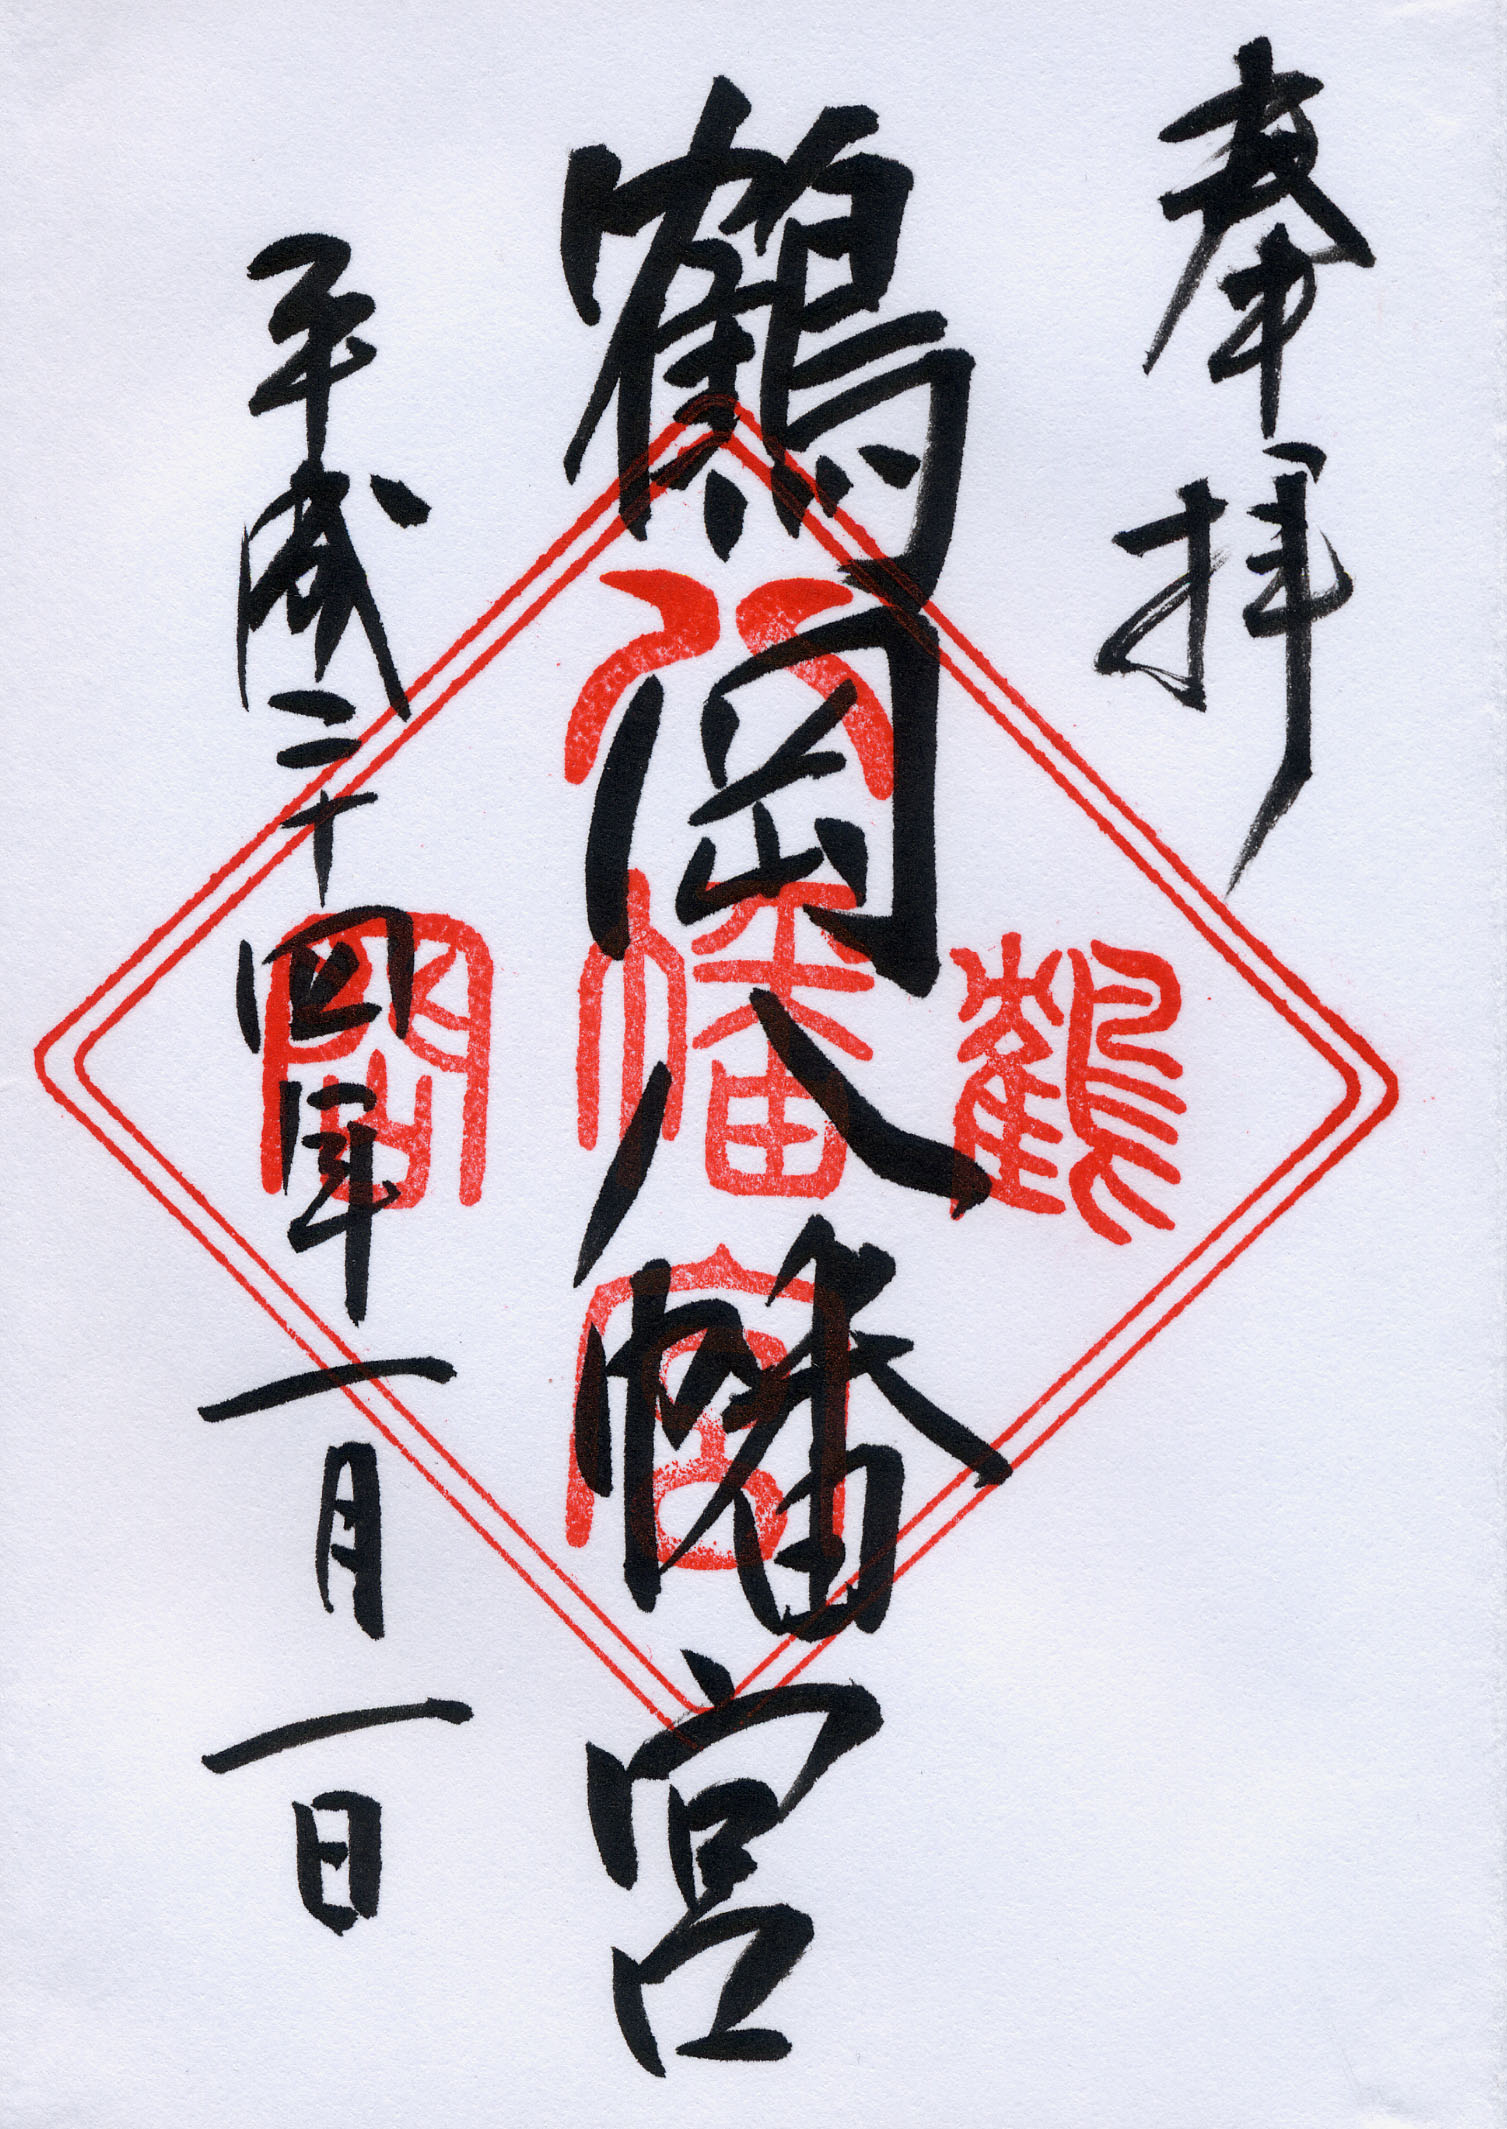 奉拝
鶴岡八幡宮
平成二十四年一月一日
鶴岡
八幡宮